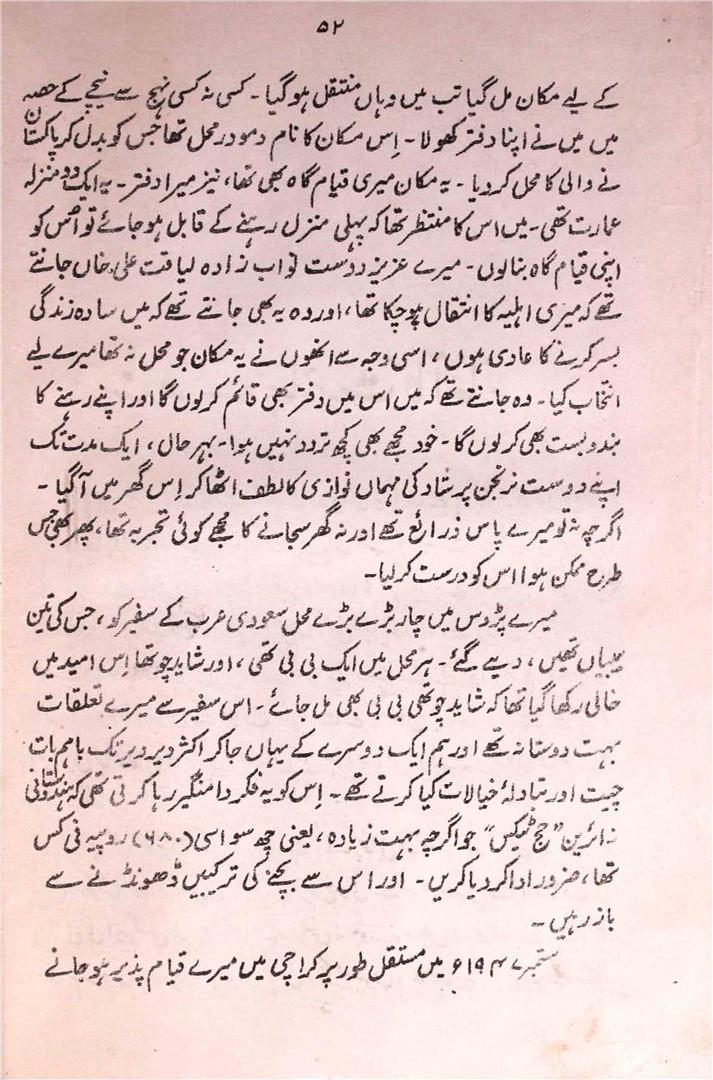 ۵۲
کے لیے مکان مل گیا تب میں وہاں منتقل ہو گیا۔ کسی نہ کسی نہج سے نیچے کے حصہ
میں میں نے اپنا دفتر کھولا۔ اِس مکان کا نام دمودر محل تھا جس کو بدل کر پاکستان
نے والی کا محل کر دیا۔ یہ مکان میری قیام گاہ بھی تھا، نیز میرا دفتر۔ یہ ایک دو منزلہ
عمارت تھی۔ میں اس کا منتظر تھا کہ پہلی منزل رہنے کے قابل ہو جائے تو اُس کو
اپنی قیام گاہ بنا لوں۔ میرے عزیز دوست نواب زادہ لیاقت علی خاں جانتے
تھے کہ میری اہلیہ کا انتقال ہو چکا تھا، اور وہ یہ بھی جانتے تھے کہ میں سادہ زندگی
بسر کرنے کا عادی ہوں، اسی وجہ سے انھوں نے یہ مکان جو محل نہ تھا میرے لیے
انتخاب کیا۔ وہ جانتے تھے کہ میں اس میں دفتر بھی قائم کر لوں گا اور اپنے رہنے کا
بندوبست بھی کر لوں گا۔ خود مجھے بھی کچھ تردد نہیں ہوا۔ بہر حال، ایک مدت تک
اپنے دوست نرنجن پرشاد کی مہماں نوازی کا لطف اٹھا کر اِس گھر میں آ گیا۔
اگرچہ نہ تو میرے پاس ذرائع تھے اور نہ گھر سجانے کا مجھے کوئی تجربہ تھا، پھر بھی جس
طرح ممکن ہوا اس کو درست کر لیا۔
میرے پڑوس میں چار بڑے بڑے محل سعودی عرب کے سفیر کو، جس کی تین
بیبیاں تھیں، دیے گئے۔ ہر محل میں ایک بی بی تھی، اور شاید چوتھا اِس امید میں
خالی رکھا گیا تھا کہ شاید چوتھی بی بی بھی مل جائے۔ اس سفیر سے میرے تعلقات
بہت دوستانہ تھے اور ہم ایک دوسرے کے یہاں جا کر اکثر دیر دیر تک باہم بات
چیت اور تبادلۂ خیالات کیا کرتے تھے۔ اِس کو یہ فکر دامنگیر رہا کرتی تھی کہ ہندوستانی
زائرین "حج ٹیکس" جو اگرچہ بہت زیادہ، یعنی چھ سو اسی (۶۸۰) روپیہ فی کس
تھا، ضرور ادا کر دیا کریں۔ اور اس سے بچنے کی ترکیبیں ڈھونڈنے سے
باز رہیں۔
ستمبر ۱۹۴۷ء میں مستقل طور پر کراچی میں میرے قیام پذیر ہو جانے